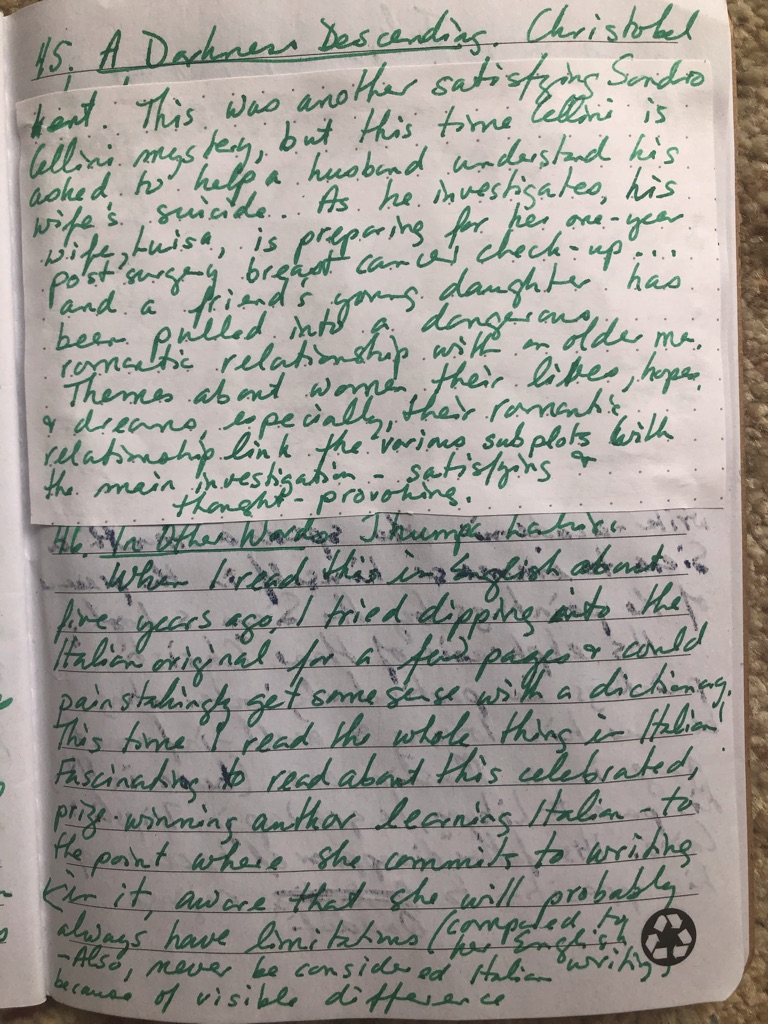 45. A Darkness Descending. Christobel
Kent. This was another satisfying Sandro
Cellini mystery, but this time Cellini is
asked to help a husband understand his
wife's suicide. As he investigates, his
wife, Luisa, is preparing for her one-year
post surgery breast cancer check-up...
and a friend's young daughter has
been pulled into a dangerous
romantic relationship with an older man.
Themes about women, their lives, hopes,
& dreams, especially, their romantic
relationship link the various subplots with
the main investigation - satisfying &
thought-provoking.
46. In Other Words. Jhumpa Lahiri.
When I read this in English about
five years ago, I tried dipping into the
Italian original for a few pages & could
painstakingly get some sense with a dictionary.
This time I read the whole thing in Italian!
Fascinating to read about this celebrated,
prize-winning author learning Italian - to
the point where she commits to writing
in it, aware that she will probably
always have limitations (compared to
her English)
- Also, never be considered Italian writing,
because of visible difference